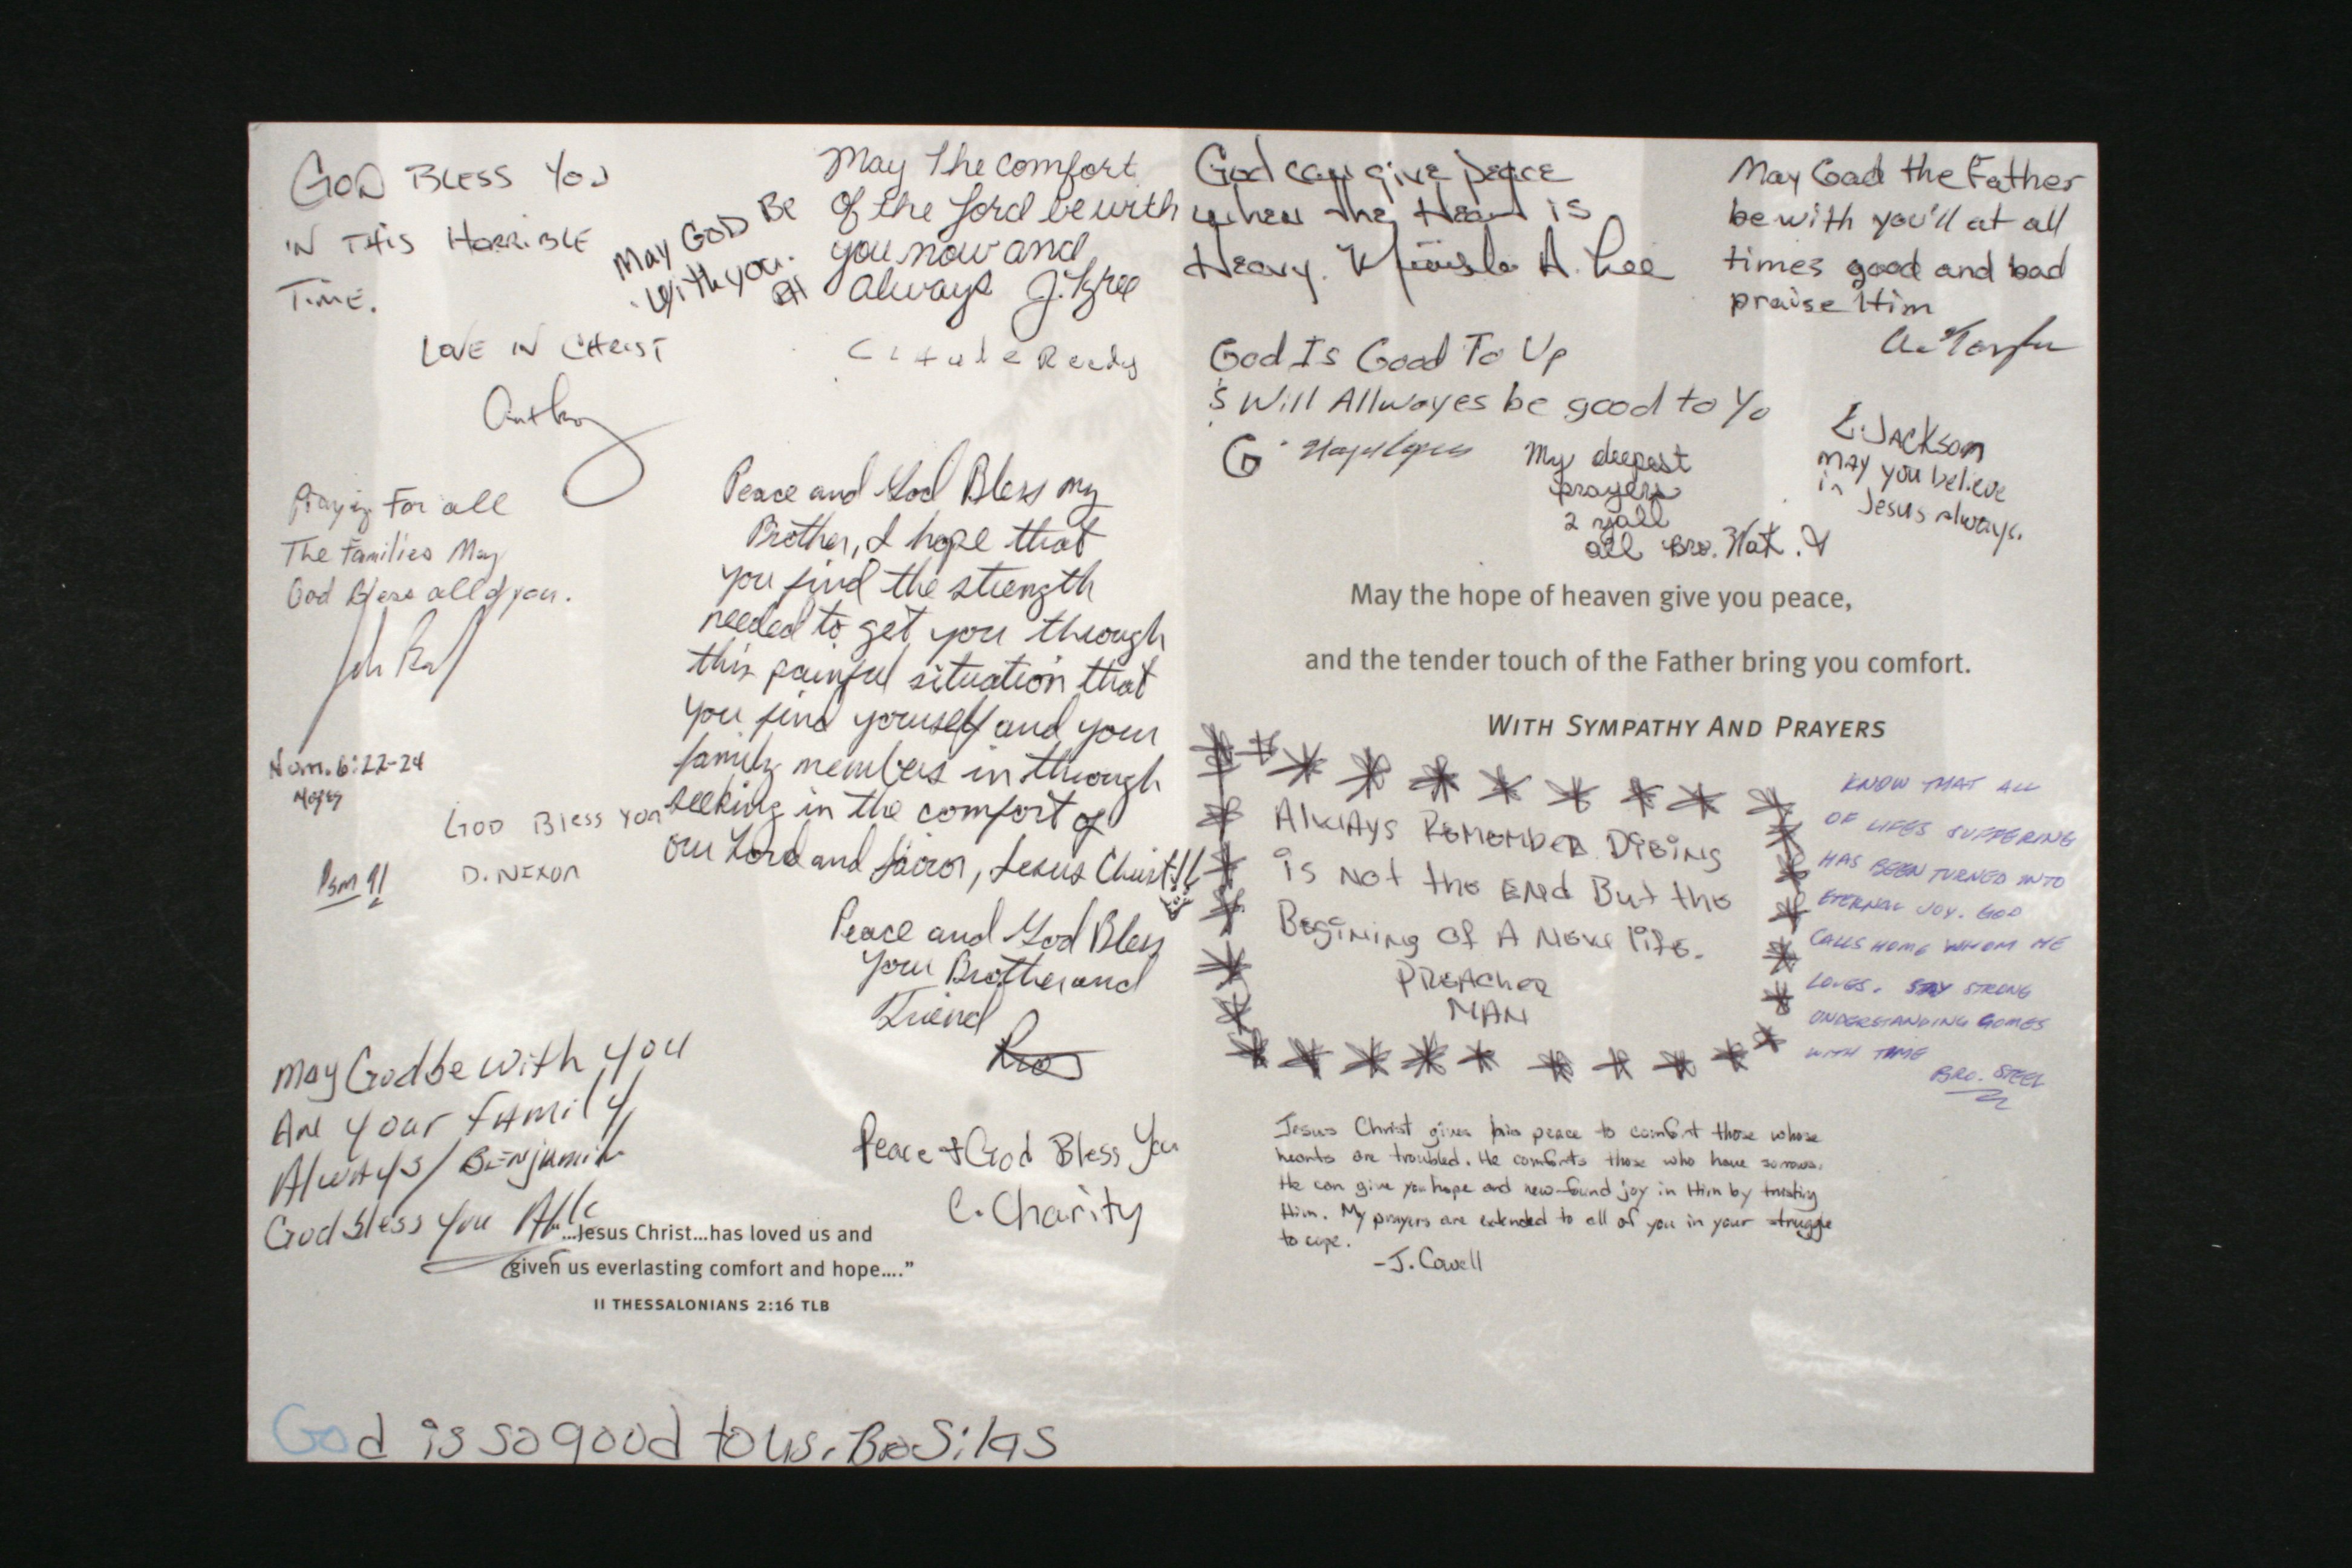 GOD BLESS YOU
IN THIS HORRIBLE
TIME.
LOVE IN CHRIST
MAY GOD BE
with you.
May The comfort
of the Lord be with
you now and
always J.
Praying For all
The Families May
God Bless all of you.
Num. 6:22-24
Psm 91
GOD Bless You
D. NIXON
Peace and God Bless my
Brother, I hope that
you find the strength
needed to get you through
this painful situation that
you find youself and your
family members in through
seeking in the comfort of
our Lord and , Jesus Christ!!
Peace and God Bless
your Brother and
Friend
Rios
May God be with you
An your FAMily
AlwAys/ BENjamin
God bless you All
Peace + God Bless You
C. Charity
"...Jesus Christ...has loved us and
given us everlasting comfort and hope...."
II THESSALONIANS 2:16 TLB
God is so good to us. Bro Silas
God can give peace
when the Heart is
Heavy. A. Lee
May Goad the Father
be with you'll at all
times good and bad
praise Him
God Is Good To Up
& Will Allwayes be good to Yo
G.
My deepest
prayers
2 yall
all Bro. Nat.
L. JACKSON
MAY you believe
in Jesus always.
May the hope of heaven give you peace,
and the tender touch of the Father bring you comfort.
WITH SYMPATHY AND PRAYERS
AlwAys REMEMBER Dieing
is not the END But the
Begining of A New life.
PREACHER
MAN
KNOW THAT ALL
OF LIFES SUFFERING
HAS BEEN TURNED INTO
ETERNAL JOY. GOD
CALLS HOME WHOM HE
LOVES. STAY STRONG
UNDERSTANDING COMES
WITH TIME
BRO. STEEL
Jesus Christ gives his peace to comfort those whose
hearts are troubled. He comforts those who have sorrows.
He can give you hope and new-found joy in Him by trusting
Him. My prayers are extended to all of you in your struggle
to cope.
-J. Cowell